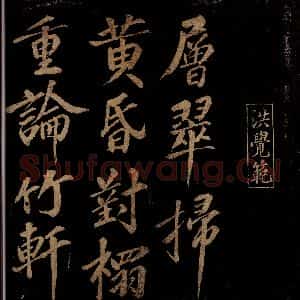 洪覺範
層翠掃
黄昏對榻
重論竹軒
Shufawang.Cn